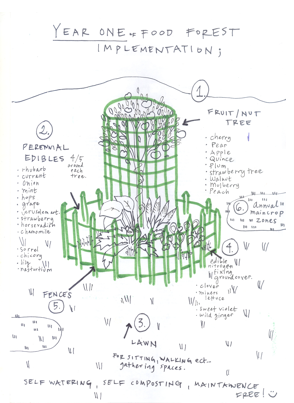 YEAR ONE OF FOOD FOREST
IMPLEMENTATION;
1.
FRUIT/NUT
TREE
- cherry
- Pear
- Apple
- Quince
- Plum
- strawberry tree
- Walnut
- mulberry
- Peach
2.
PERENNIAL
EDIBLES
4/5
around
each
tree.
- rhubarb
- currant
- onion
- mint
- hops
- grape
- strawberry
- horseradish
- chamomile
- sorrel
- chicory
- lily
- nasturtium
6. annual
maincrop
zones
4.
edible
nitrogen
fixing
groundcover.
- clover
- sweet violet
- wild ginger
FENCES
5.
3.
LAWN
FOR SITTING, WALKING ECT..
gathering spaces.
SELF WATERING, SELF COMPOSTING, MAINTAWENCE
FREE!